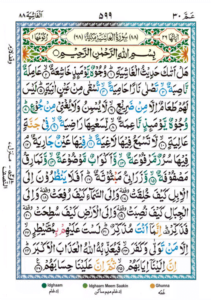 عَمَّ ٣٠
٥٩٩
الغاشية ٨٨
اٰيَاتُهَا ٢٦ (٨٨) سُوْرَةُ الْغَاشِيَةِ مَكِّيَّةٌ (٦٨) رُكُوْعُهَا ١
بِسْمِ اللّٰهِ الرَّحْمٰنِ الرَّحِيْمِ
هَلْ اَتٰىكَ حَدِيْثُ الْغَاشِيَةِ ۝ وُجُوْهٌ يَّوْمَئِذٍ خَاشِعَةٌ ۝ عَامِلَةٌ
نَّاصِبَةٌ ۝ تَصْلٰى نَارًا حَامِيَةً ۝ تُسْقٰى مِنْ عَيْنٍ اٰنِيَةٍ ۝ لَيْسَ
لَهُمْ طَعَامٌ اِلَّا مِنْ ضَرِيْعٍ ۝ لَّا يُسْمِنُ وَلَا يُغْنِيْ مِنْ جُوْعٍ ۝
وُجُوْهٌ يَّوْمَئِذٍ نَّاعِمَةٌ ۝ لِّسَعْيِهَا رَاضِيَةٌ ۝ فِيْ جَنَّةٍ
عَالِيَةٍ ۝ لَّا تَسْمَعُ فِيْهَا لَاغِيَةً ۝ فِيْهَا عَيْنٌ جَارِيَةٌ ۝ فِيْهَا
سُرُرٌ مَّرْفُوْعَةٌ ۝ وَّاَكْوَابٌ مَّوْضُوْعَةٌ ۝ وَّنَمَارِقُ
مَصْفُوْفَةٌ ۝ وَّزَرَابِيُّ مَبْثُوْثَةٌ ۝ اَفَلَا يَنْظُرُوْنَ اِلَى
الْاِبِلِ كَيْفَ خُلِقَتْ ۝ وَاِلَى السَّمَآءِ كَيْفَ رُفِعَتْ ۝ وَاِلَى
الْجِبَالِ كَيْفَ نُصِبَتْ ۝ وَاِلَى الْاَرْضِ كَيْفَ سُطِحَتْ ۝
فَذَكِّرْ اِنَّمَآ اَنْتَ مُذَكِّرٌ ۝ لَسْتَ عَلَيْهِمْ بِمُصَۜيْطِرٍ ۝
اِلَّا مَنْ تَوَلّٰى وَكَفَرَ ۝ فَيُعَذِّبُهُ اللّٰهُ الْعَذَابَ الْاَكْبَرَ ۝
اِنَّ اِلَيْنَآ اِيَابَهُمْ ۝ ثُمَّ اِنَّ عَلَيْنَا حِسَابَهُمْ ۝
Idghaam
ادغام
Idghaam Meem Saakin
ادغام ميم ساكن
Ghunna
غنه